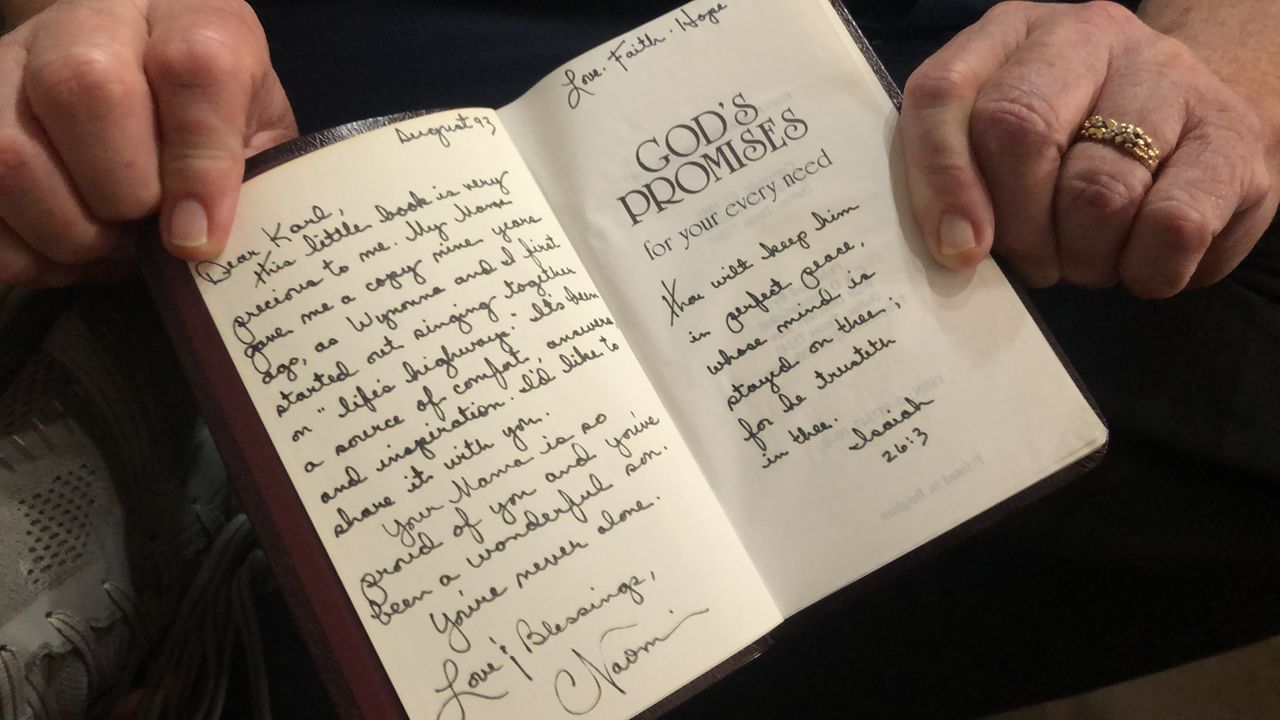 August 93
Dear Karl,
this little book is very
precious to me. My Mama
gave me a copy nine years
ago, as Wynonna and I first
started out singing together
on "life's highways." It's been
a source of comfort, answers,
and inspiration. I'd like to
share it with you.
Your Mama is so
proud of you and you've
been a wonderful son.
You're never alone.
Love & Blessings,
Naomi
Love. Faith. Hope
GOD'S
PROMISES
for your every need
Thou wilt keep him
in perfect peace,
whose mind is
stayed on thee:
for he trusteth
in thee.
Isaiah
26:3
Printed in Belgium